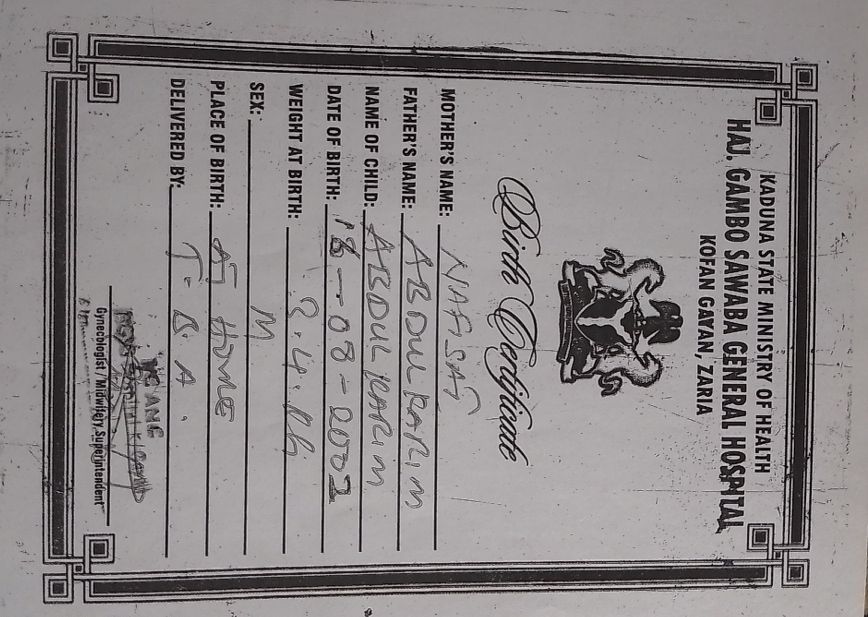 KADUNA STATE MINISTRY OF HEALTH
HAJ. GAMBO SAWABA GENERAL HOSPITAL
KOFAN GAYAN, ZARIA
Birth Certificate
MOTHER'S NAME: NAFISAT
FATHER'S NAME: ABDULKARIM
NAME OF CHILD: ABDULKARIM
DATE OF BIRTH: 18-08-2002
WEIGHT AT BIRTH: 3.4.
SEX: M
PLACE OF BIRTH: AT HOME
DELIVERED BY: T.B.A.
Gynecologist / Midwifery Superintendent